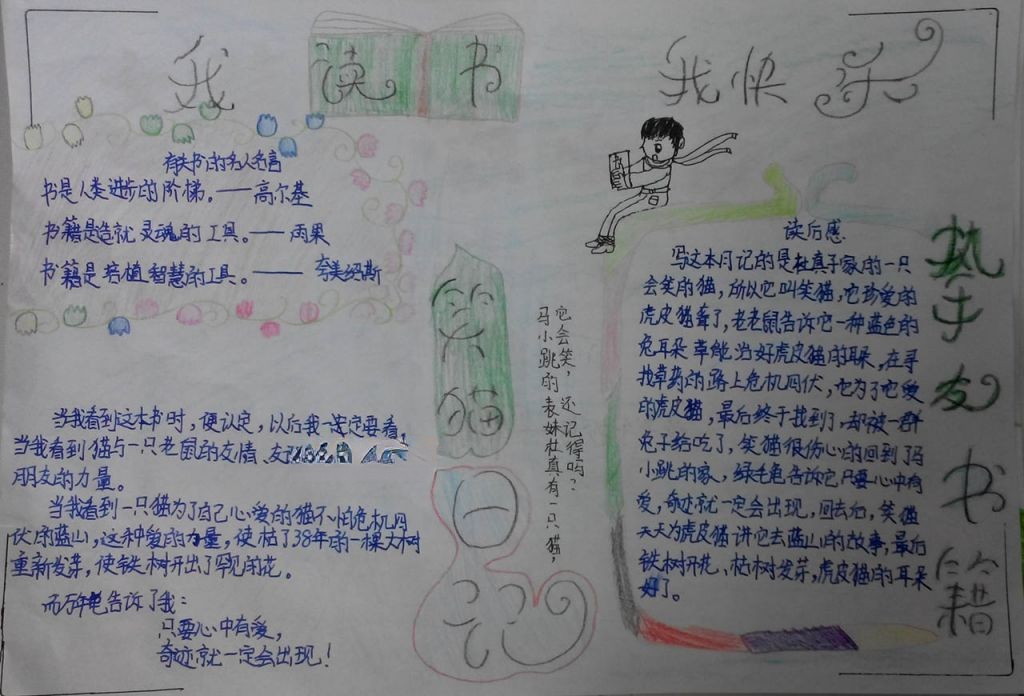 我读书 我快乐
有关书的名人名言
书是人类进步的阶梯。——高尔基
书籍是造就灵魂的工具。——雨果
书籍是培植智慧的工具。——夸美纽斯
当我看到这本书时，便认定，以后我一定要看，
当我看到猫与一只老鼠的友情，友
朋友的力量。
当我看到一只猫为了自己心爱的猫不怕危机四
伏的蓝山，这种爱的力量，使枯了38年的一棵大树
重新发芽，使铁树开出了罕见的花。
而万年龟告诉了我：
只要心中有爱，
奇迹就一定会出现！
笑猫日记
它会笑，还记得吗？
马小跳的表妹杜真有一只猫，
读后感
马这本月记的是杜真子家的一只
会笑的猫，所以它叫笑猫，它珍爱的
虎皮猫聋了，老老鼠告诉它一种蓝色的
兔耳朵草能治好虎皮猫的耳朵，在寻
找草药的路上危机四伏，也为了它爱
的虎皮猫，最后终于找到了，却被一群
兔子给吃了，笑猫很伤心的回到了马
小跳的家，绿毛龟告诉它只要心中有
爱，奇迹就一定会出现，回去后，笑猫
天天为虎皮猫讲它去蓝山的故事，最后
铁树开花、枯树发芽，虎皮猫的耳朵
好了。
挚友书籍